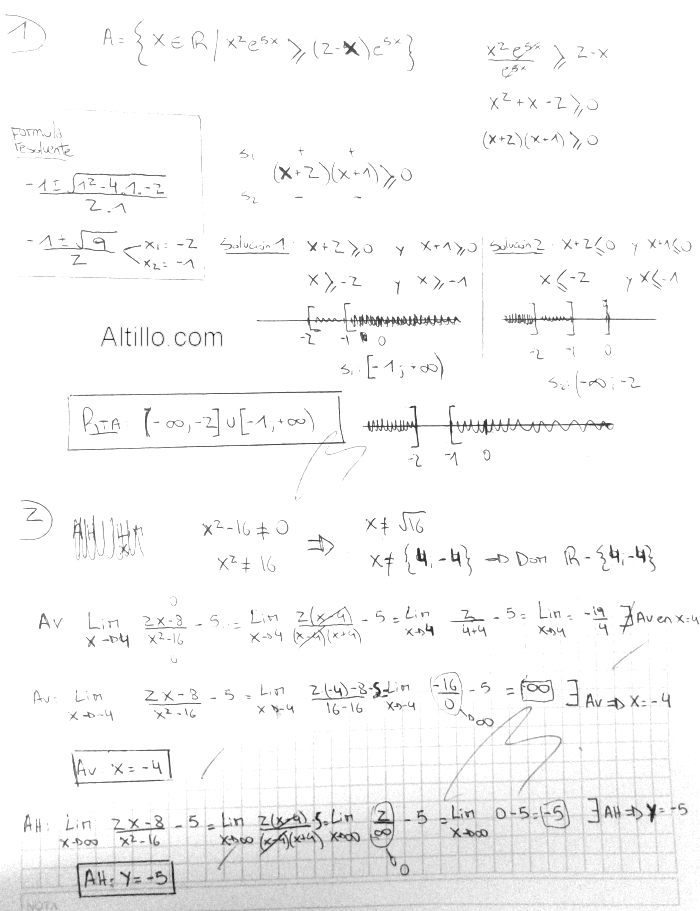 1) A = { X ∈ R / x² e^5x ≥ (2-x) e^5x }
x² e^5x / e^5x ≥ 2-x
x² + x - 2 ≥ 0
(x+2)(x+1) ≥ 0
Formula
resolvente
-1 ± √(1² - 4.1.-2) / 2.1
-1 ± √9 / 2
x₁: -2
x₂: -1
S₁ + +
(x+2)(x+1) ≥ 0
S₂ - -
Solución 1: x+2 ≥ 0 y x+1 ≥ 0
x ≥ -2 y x ≥ -1
-2 -1 0
S₁: [-1; +∞)
Solución 2: x+2 ≤ 0 y x+1 ≤ 0
x ≤ -2 y x ≤ -1
-2 -1 0
S₂: (-∞; -2
Altillo.com
RTA: (-∞, -2] ∪ [-1, +∞)
-2 -1 0
2) x² - 16 ≠ 0 ⇒ x ≠ √16
x² ≠ 16 x ≠ {4, -4} ⇒ Dom R - {4, -4}
Av Lim x→4 2x-8 / x²-16 - 5 = Lim x→4 2(x-4) / (x-4)(x+4) - 5 = Lim x→4 2 / 4+4 - 5 = Lim = -19/4 ∄ Av en x=4
Av: Lim x→-4 2x-8 / x²-16 - 5 = Lim x→-4 2(-4)-8 / 16-16 - 5 = Lim x→-4 -16/0 - 5 = ∞ ∃ Av ⇒ X = -4
→∞
Av X = -4
AH: Lim x→∞ 2x-8 / x²-16 - 5 = Lim x→∞ 2(x-4) / (x-4)(x+4) - 5 = Lim x→∞ 2/∞ - 5 = Lim x→∞ 0-5 = -5 ∃ AH ⇒ Y = -5
→0
AH: Y = -5
NOTA